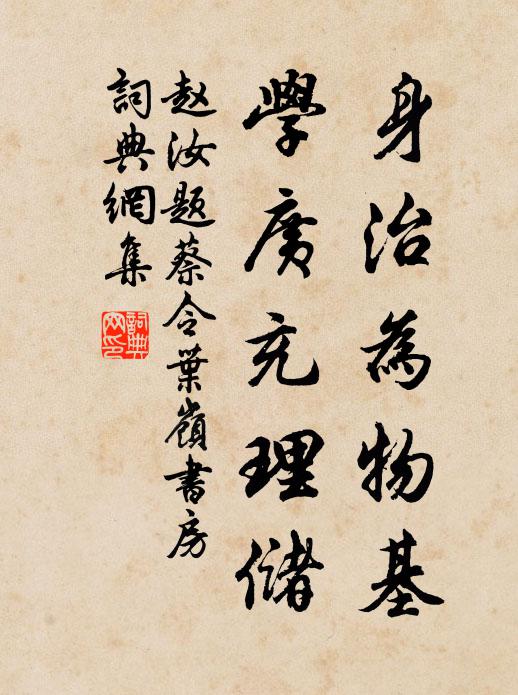 身治為物基
學廣充理儲
赵汝题蔡令葉嶺書房
詞典網集
詞典網印